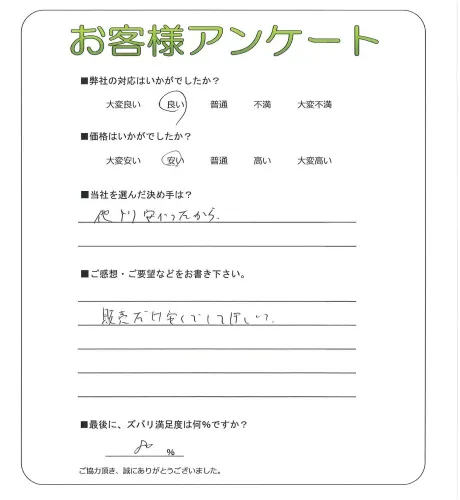 お客様アンケート
■弊社の対応はいかがでしたか？
大変良い 良い 普通 不満 大変不満
■価格はいかがでしたか？
大変安い 安い 普通 高い 大変高い
■当社を選んだ決め手は？
他より安かったから。
■ご感想・ご要望などをお書き下さい。
販売だけ
してほしい。
■最後に、ズバリ満足度は何%ですか？
%
ご協力頂き、誠にありがとうございました。